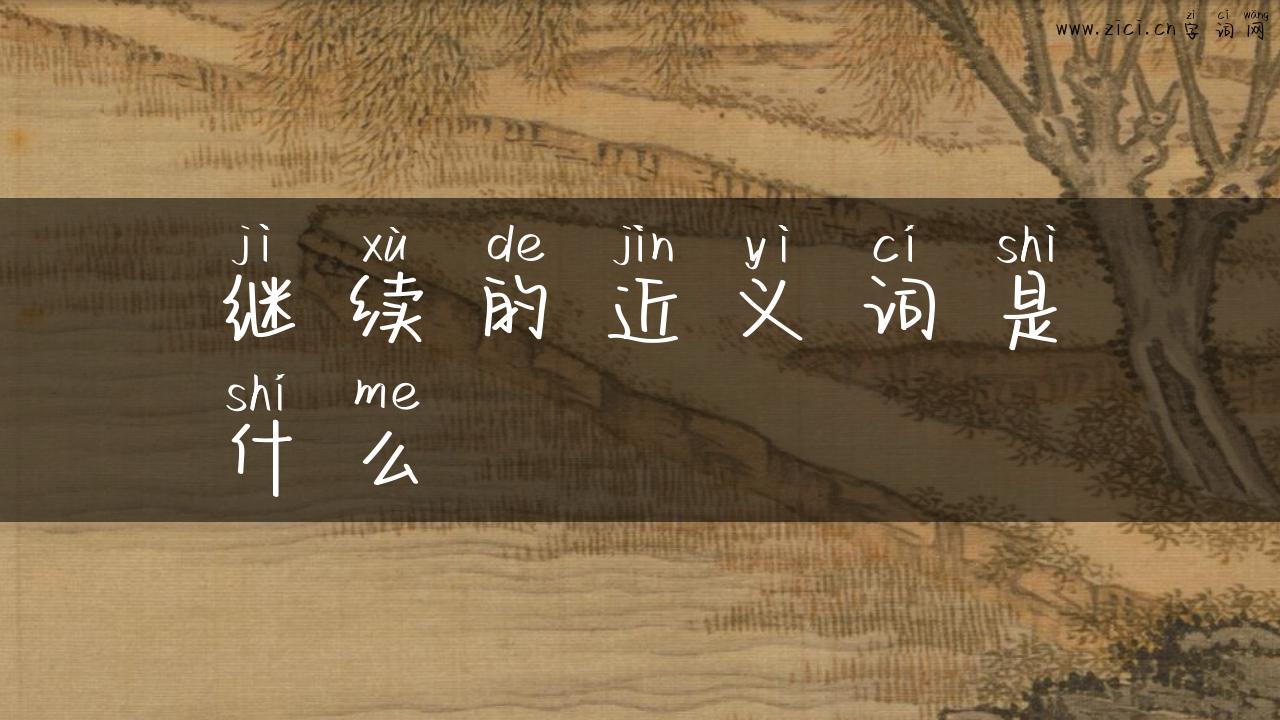 zì cí wǎng
www.zici.cn字词网
jì xù de jìn yì cí shì
继续的近义词是
shí me
什么